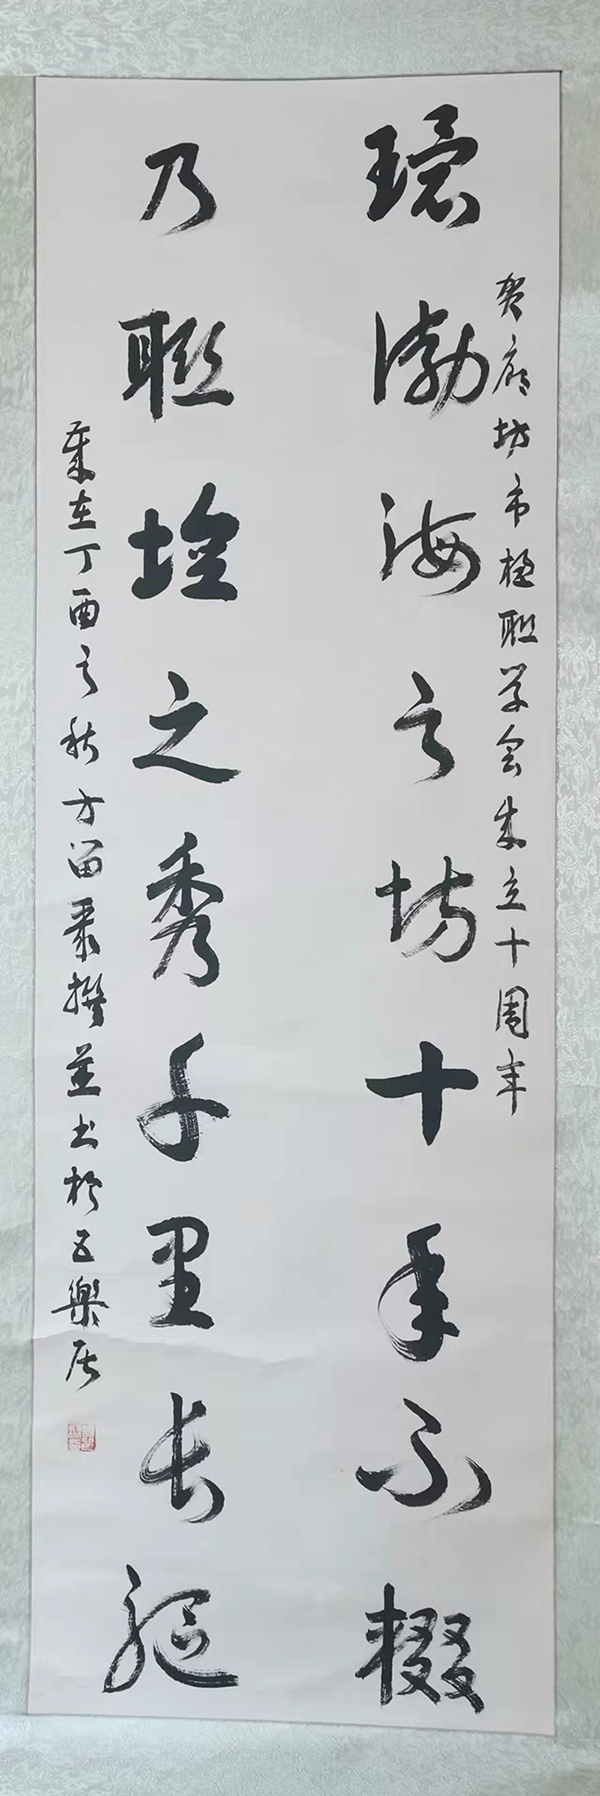 賀廊坊市楹联学会成立十周年
環渤海之坊十年不輟
乃聯壇之秀千里長驅
歲在丁酉之秋方留聚撰并书於五樂居